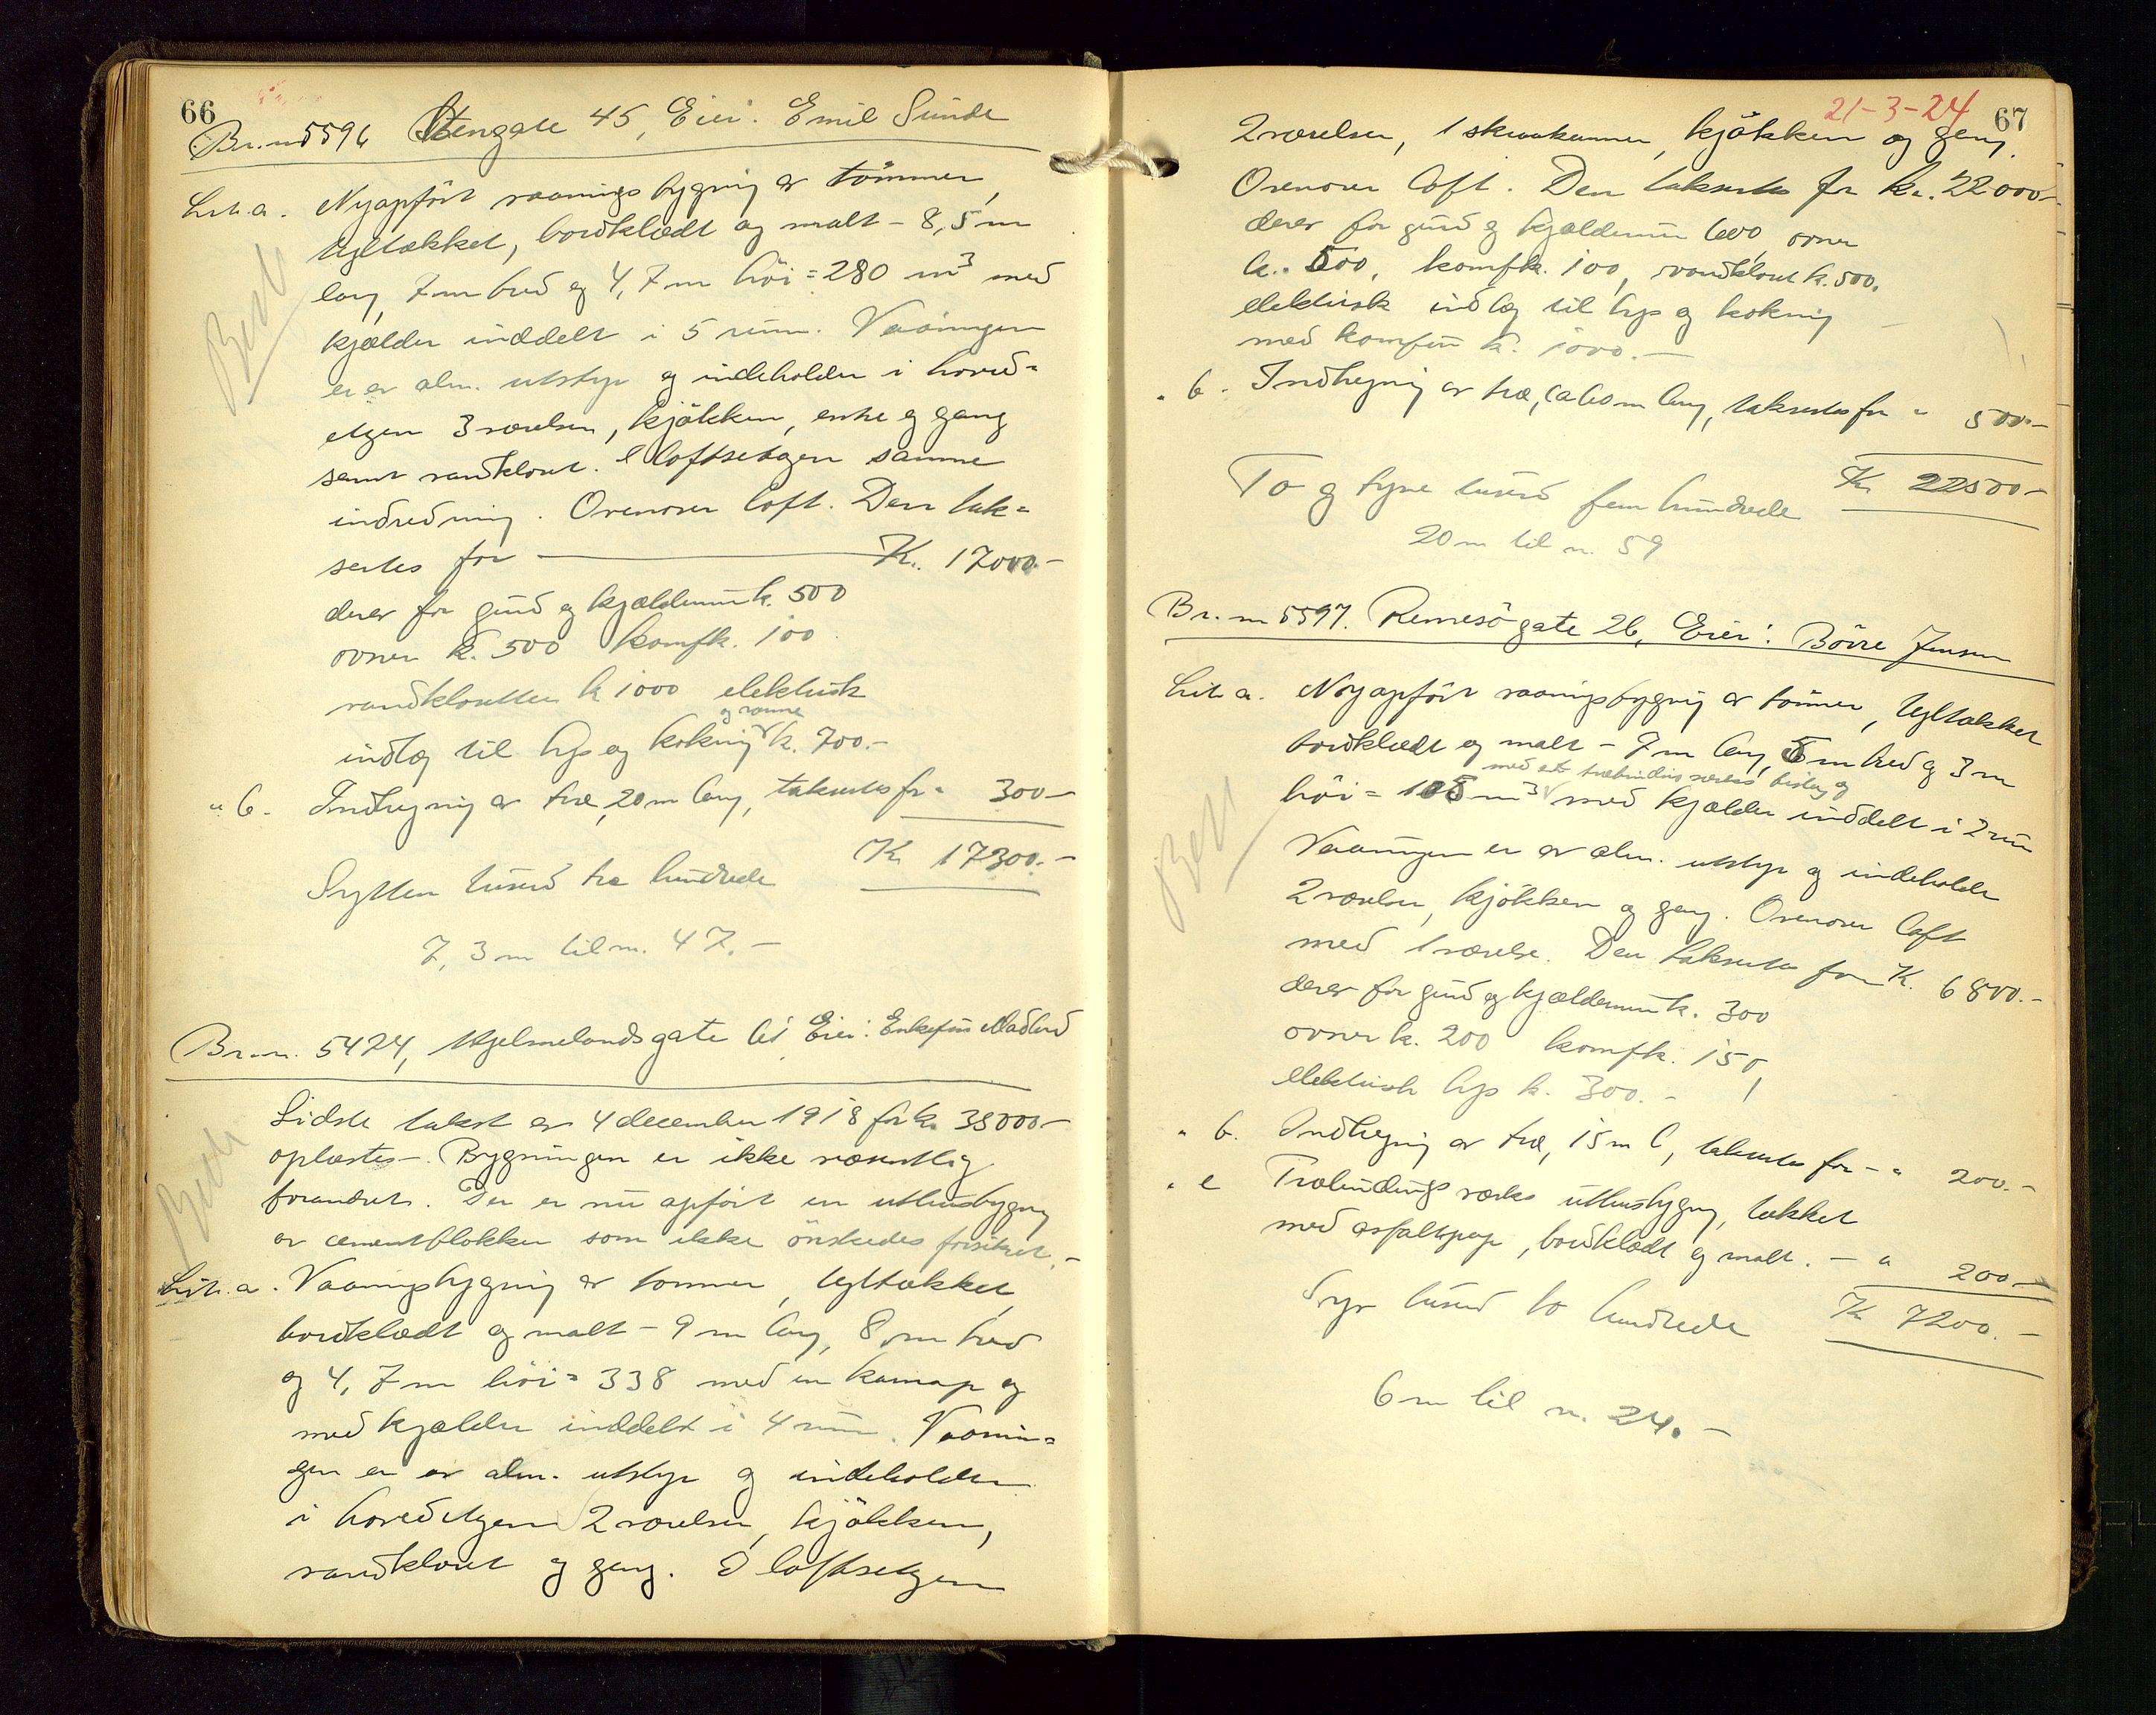 66
Br.nr 5596 Stengate 45, Eier: Emil Sunde
Lit. a. Nyopført vaaningsbygning av tømmer,
tegltækket, bordklædt og malt - 8,5 m
lang, 7 m bred og 4,7 m høi = 280 m³ med
kjælder inddelt i 5 rum. Vaaningen
er av alm. utstyr og indeholder i hoved-
etgen 3 værelser, kjøkken, entre og gang
samt vandkloset. I loftsetagen samme
indredning. Ovenover loft. Den tak-
sertes for Kr. 17000.-
derav for grund og kjældermur k. 500
ovner k. 500 komfk. 100
vandklosetter k 1000 elektrisk
indlæg til lys og kokning og varme k. 700.-
" b. Indhegning av træ, 20 m lang, takseres for " 300-
Kr. 17300.-
Sytten tusind tre hundrede
7,3 m til nr. 47.-
Br.nr. 5424, Hjelmelandsgate 61 Eier: Enkefru Madland
Sidste takst av 4 december 1918 for kr. 38000-
oplæstes-. Bygningen er ikke væsentlig
forandret. Der er nu opført en uthusbygning
av cementblokker som ikke ønskedes forsikret.-
Lit. a. Vaaningsbygning av tømmer, tegltækket,
bordklædt og malt - 9 m lang, 8 m bred
og 4,7 m høi = 338 med en kvist og
med kjælder inddelt i 4 rum. Vaanin-
gen er av alm. utstyr og indeholder
i hovedetgen 2 værelser, kjøkken,
vandkloset og gang. I loftsetgen
21-3-24
67
2 værelser, 1 skraakammer, kjøkken og gang.
Ovenover loft. Den taksertes for kr. 22000-
derav for grund og kjældermur 600, ovner
k. 500, komfk. 100, vandkloset k. 500.
elektrisk indlæg til lys og kokning
med komfur k. 1000.-
" b. Indhegning av træ, ca 60 m lang, taksertes for " 500.-
Kr. 22500-
To og tyve tusind fem hundrede
20 m til nr. 59
Br.nr 5597. Rennesøgate 26, Eier: Børre Jensen
Lit. a. Nyopført vaaningsbygning av tømmer, tegltækket
bordklædt og malt - 7 m lang, 5 m bred og 3 m
med et træbindingsverks bislag og
høi = 105 m³ med kjælder inddelt i 2 rum
Vaaningen er av alm. utstyr og indeholder
2 værelser, kjøkken og gang. Ovenover loft
med 1 værelse. Den taksertes for K. 6800.-
derav for grund og kjældermur k. 300
ovner k. 200 komfk. 150,
elektrisk lys k. 300.-
" b. Indhegning av træ, 15 m l, taksertes for - " 200.-
" c Træbindingsverks uthusbygning, tækket
med asfaltpap, bordklædt og malt. - " 200.-
Kr 7200.-
Syv tusind to hundrede
6 m til nr. 24.-